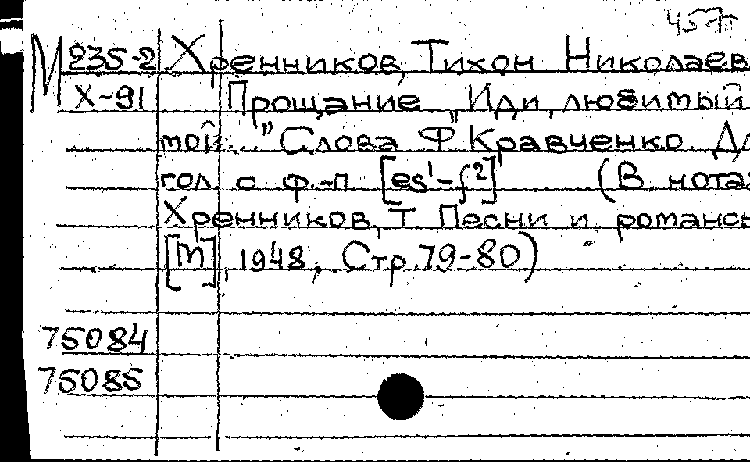 457
М 235-2 Хренников, Тихон Николаев
Х-91 Прощание "Иди, любимый
мой..." Слова Ф. Кравченко Дл
гол. с ф.-п. [es¹-f²] (В нотах
Хренников, Т. Песни и романсы
[М], 1948, Стр. 79-80)
75084
75085